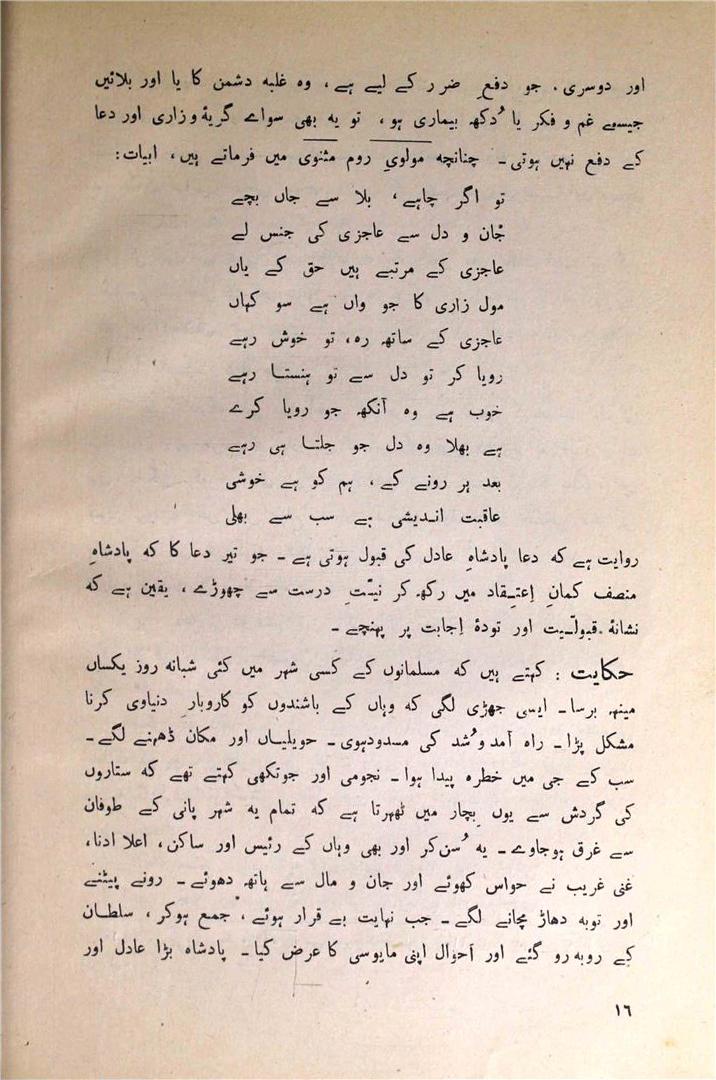 اور دوسری، جو دفعِ ضرر کے لیے ہے، وہ غلبہ دشمن کا یا اور بلائیں
جیسے غم و فکر یا دُکھ بیماری ہو، تو یہ بھی سوائے گریۂ و زاری اور دعا
کے دفع نہیں ہوتی۔ چنانچہ مولویِ روم مثنوی میں فرماتے ہیں، ابیات:
تو اگر چاہے، بلا سے جاں بچے
جُان و دل سے عاجزی کی جنس لے
عاجزی کے مرتبے ہیں حق کے یاں
مول زاری کا جو واں ہے سو کہاں
عاجزی کے ساتھ رہ، تو خوش رہے
رویا کر تو دل سے تو ہنستا رہے
خوب ہے وہ آنکھ جو رویا کرے
ہے بھلا وہ دل جو جلتا ہی رہے
بعد ہر رونے کے، ہم کو ہے خوشی
عاقبت اندیشی ہے سب سے بھلی
روایت ہے کہ دعا پادشاہِ عادل کی قبول ہوتی ہے۔ جو تیر دعا کا کہ پادشاہِ
منصف کمانِ اِعتقاد میں رکھ کر نیّتِ درست سے چھوڑے، یقین ہے کہ
نشانۂ قبولّیت اور تودۂ اِجابت پر پہنچے۔
حکایت: کہتے ہیں کہ مسلمانوں کے کسی شہر میں کئی شبانہ روز یکساں
مینہہ برسا۔ ایسی جھڑی لگی کہ وہاں کے باشندوں کو کاروبارِ دنیاوی کرنا
مشکل پڑا۔ راہ آمد و شُد کی مسدود ہوی۔ حویلیاں اور مکان ڈھہنے لگے۔
سب کے جی میں خطرہ پیدا ہوا۔ نجومی اور جوتکھی کہتے تھے کہ ستاروں
کی گردش سے یوں بِچار میں ٹھہرتا ہے کہ تمام یہ شہر پانی کے طوفان
سے غرق ہو جاوے۔ یہ سُن کر اور بھی وہاں کے رئیس اور ساکن، اعلا ادنا،
غنی غریب نے حواس کھوئے اور جان و مال سے ہاتھ دھوئے۔ رونے پیٹنے
اور توبہ دھاڑ مچانے لگے۔ جب نہایت بے قرار ہوئے، جمع ہوکر، سلطان
کے روبہ رو گئے اور اَحوال اپنی مایوسی کا عرض کیا۔ پادشاہ بڑا عادل اور
۱٦